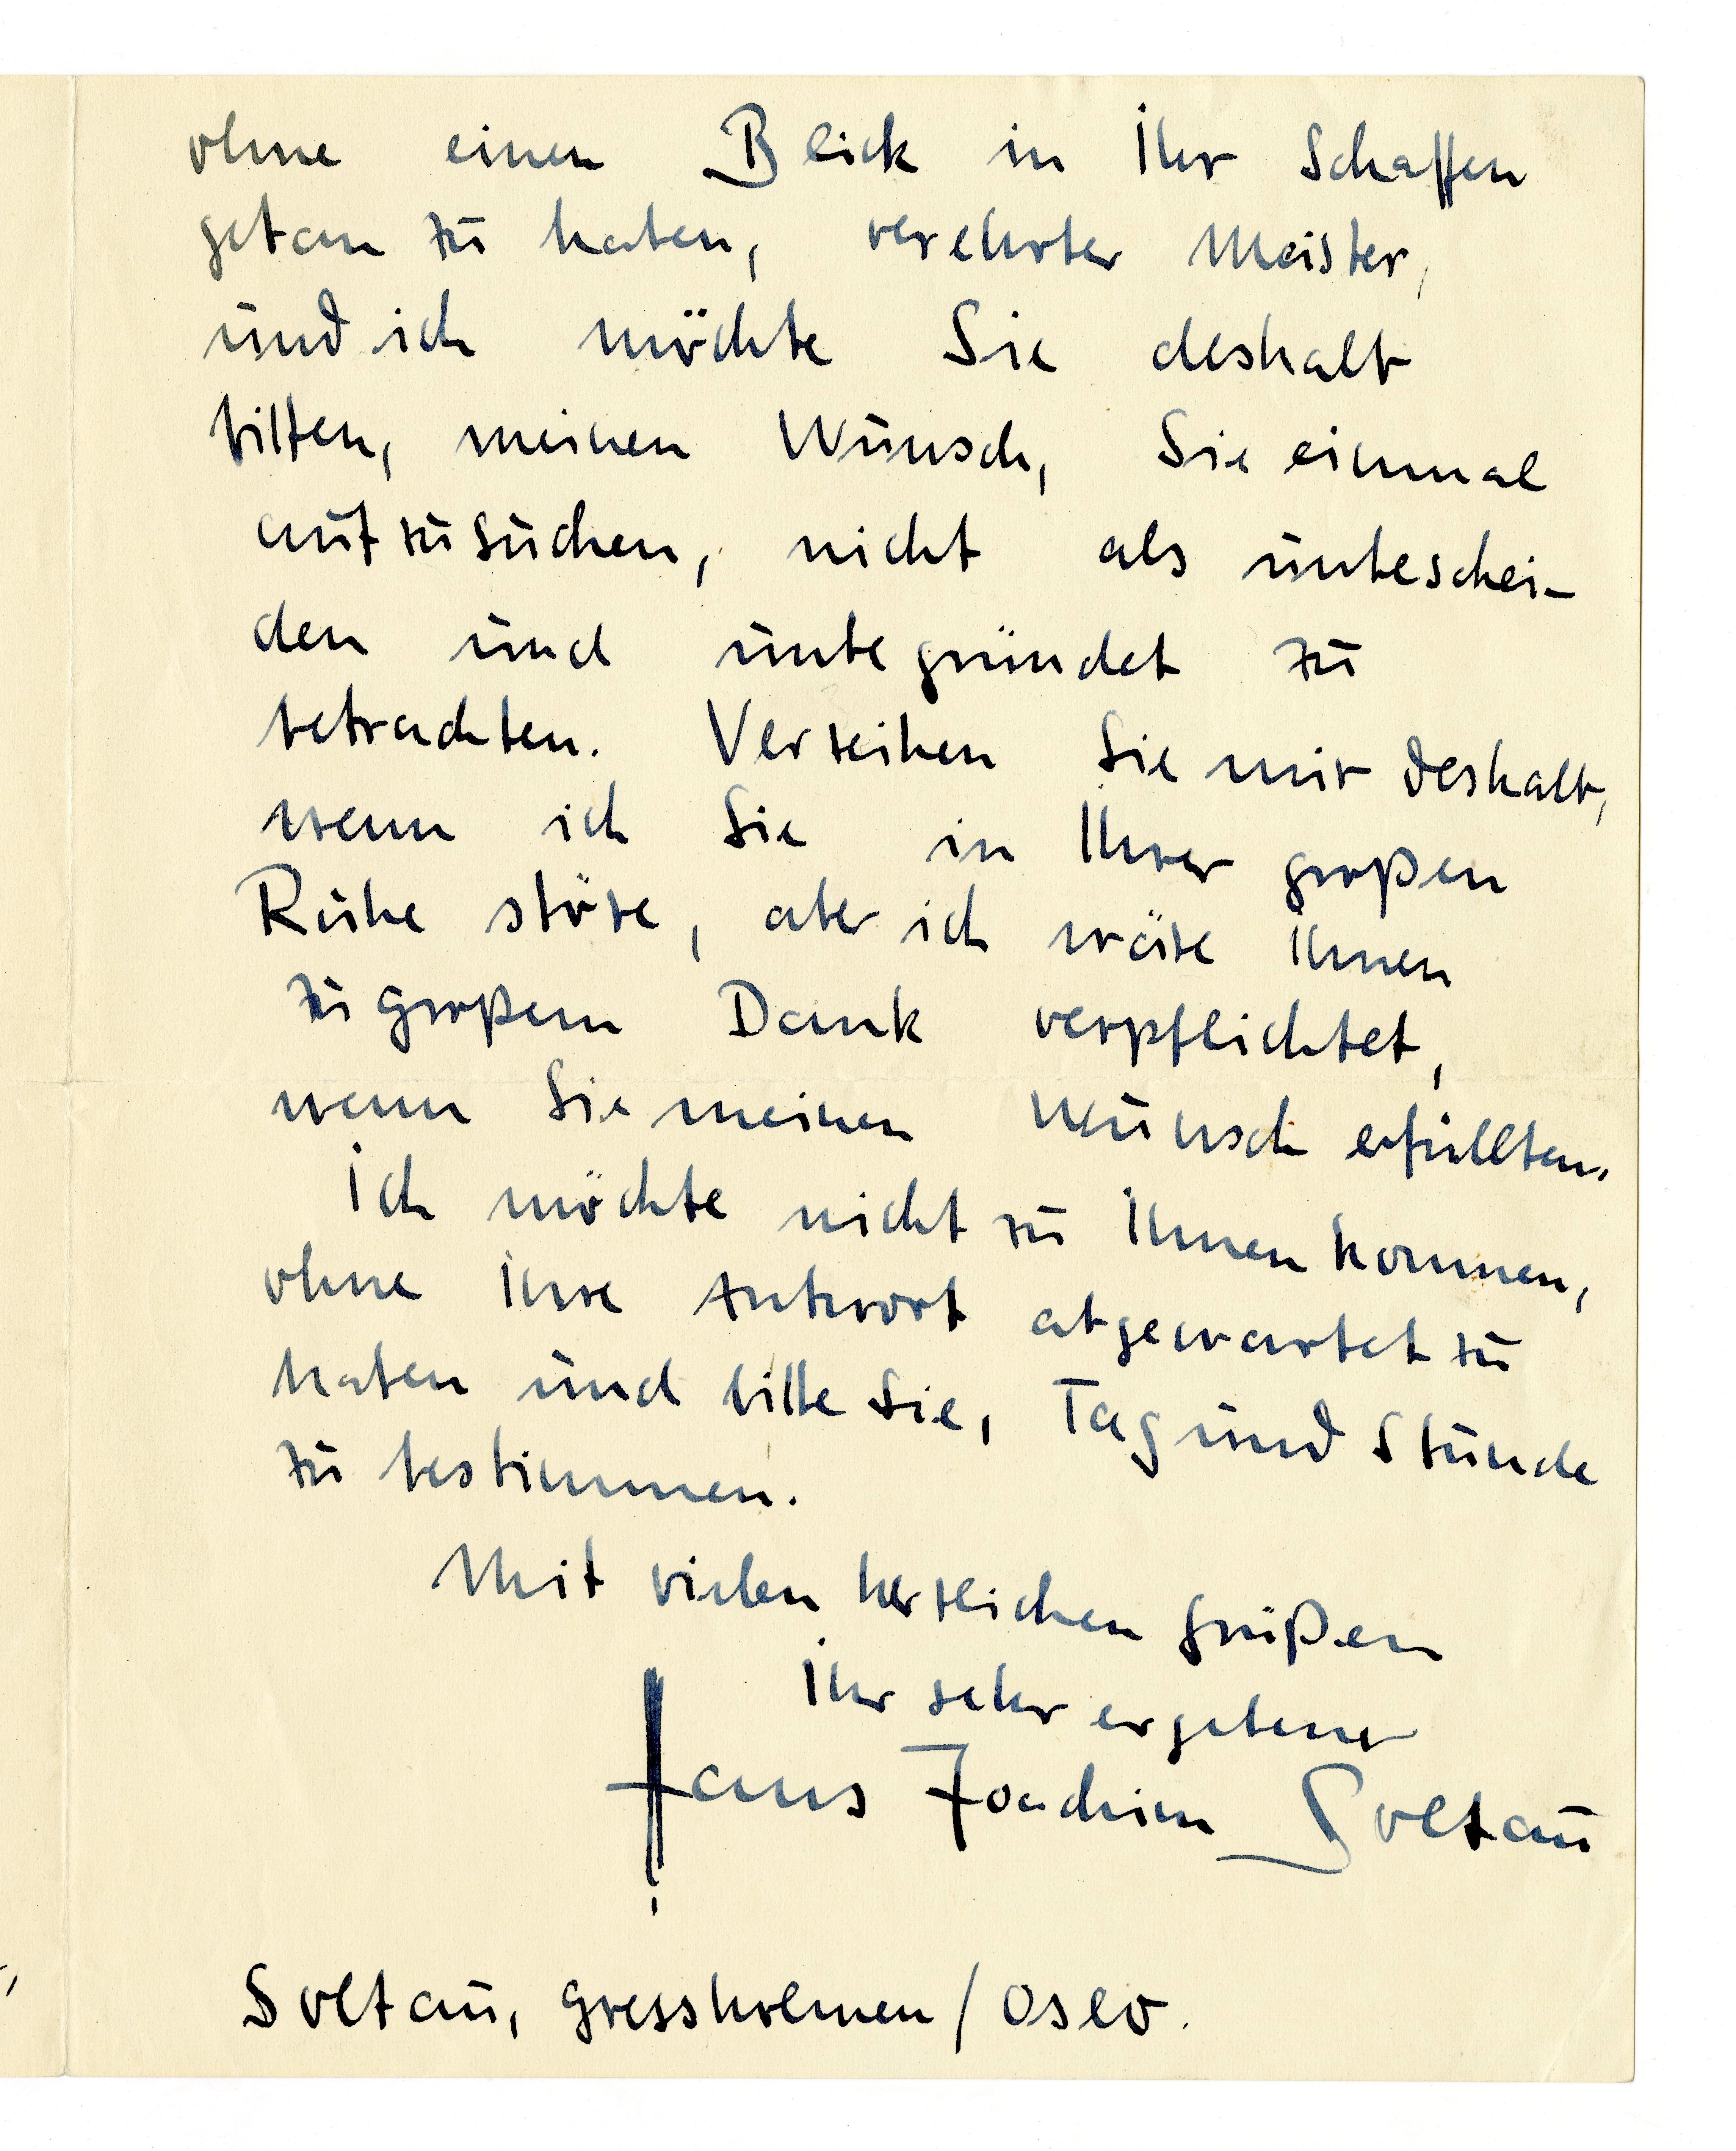 ohne einen Blick in Ihr Schaffen
getan zu haben, verehrter Meister,
und ich möchte Sie deshalb
bitten, meinen Wunsch, Sie einmal
aufzusuchen, nicht als unbeschei-
den und unbegründet zu
betrachten. Verzeihen Sie mir deshalb,
wenn ich Sie in Ihrer großen
Ruhe störe, aber ich wäre Ihnen
zu großem Dank verpflichtet,
wenn Sie meinen Wunsch erfüllten.
Ich möchte nicht zu Ihnen kommen,
ohne Ihre Antwort abgewartet zu
haben und bitte Sie, Tag und Stunde
zu bestimmen.
Mit vielen herzlichen Grüßen
Ihr sehr ergebener
Hans Joachim Soltau
Soltau, Gressholmen / Oslo.